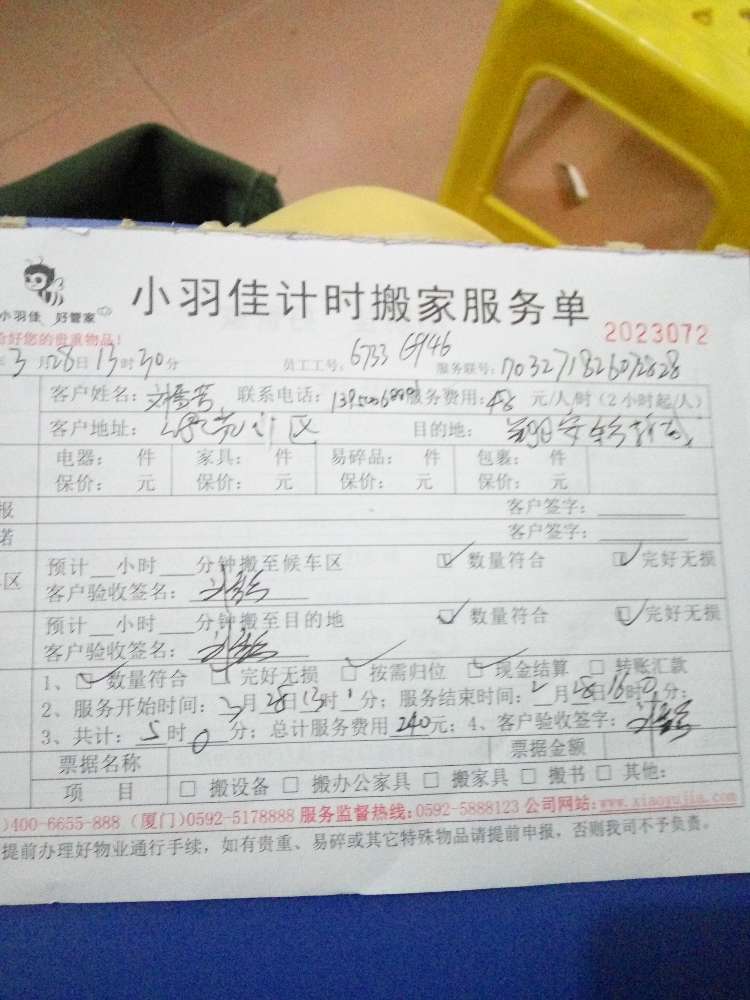 小羽佳计时搬家服务单
小羽佳 好管家
2023072
好您的贵重物品！
3月28日13时30分 员工工号：6733 6946 服务联号：
客户姓名： 联系电话： 服务费用：48元/人/时（2小时起/人）
客户地址： 目的地：
电器： 件 家具： 件 易碎品： 件 包裹： 件
保价： 元 保价： 元 保价： 元 保价： 元
报 客户签字：
诺 客户签字：
区 预计 小时 分钟搬至候车区 数量符合 完好无损
客户验收签名：
预计 小时 分钟搬至目的地 数量符合 完好无损
客户验收签名：
1、 数量符合 完好无损 按需归位 现金结算 转账汇款
2、服务开始时间：3月28日13时 分；服务结束时间： 月28日16时0分；
3、共计：5时0分；总计服务费用240元；4、客户验收签字：
票据名称 票据金额
项 目 搬设备 搬办公家具 搬家具 搬书 其他：
)400-6655-888 (厦门)0592-5178888 服务监督热线：0592-5888123 公司网站：www.xiaoyujia.com
提前办理好物业通行手续，如有贵重、易碎或其它特殊物品请提前申报，否则我司不予负责。